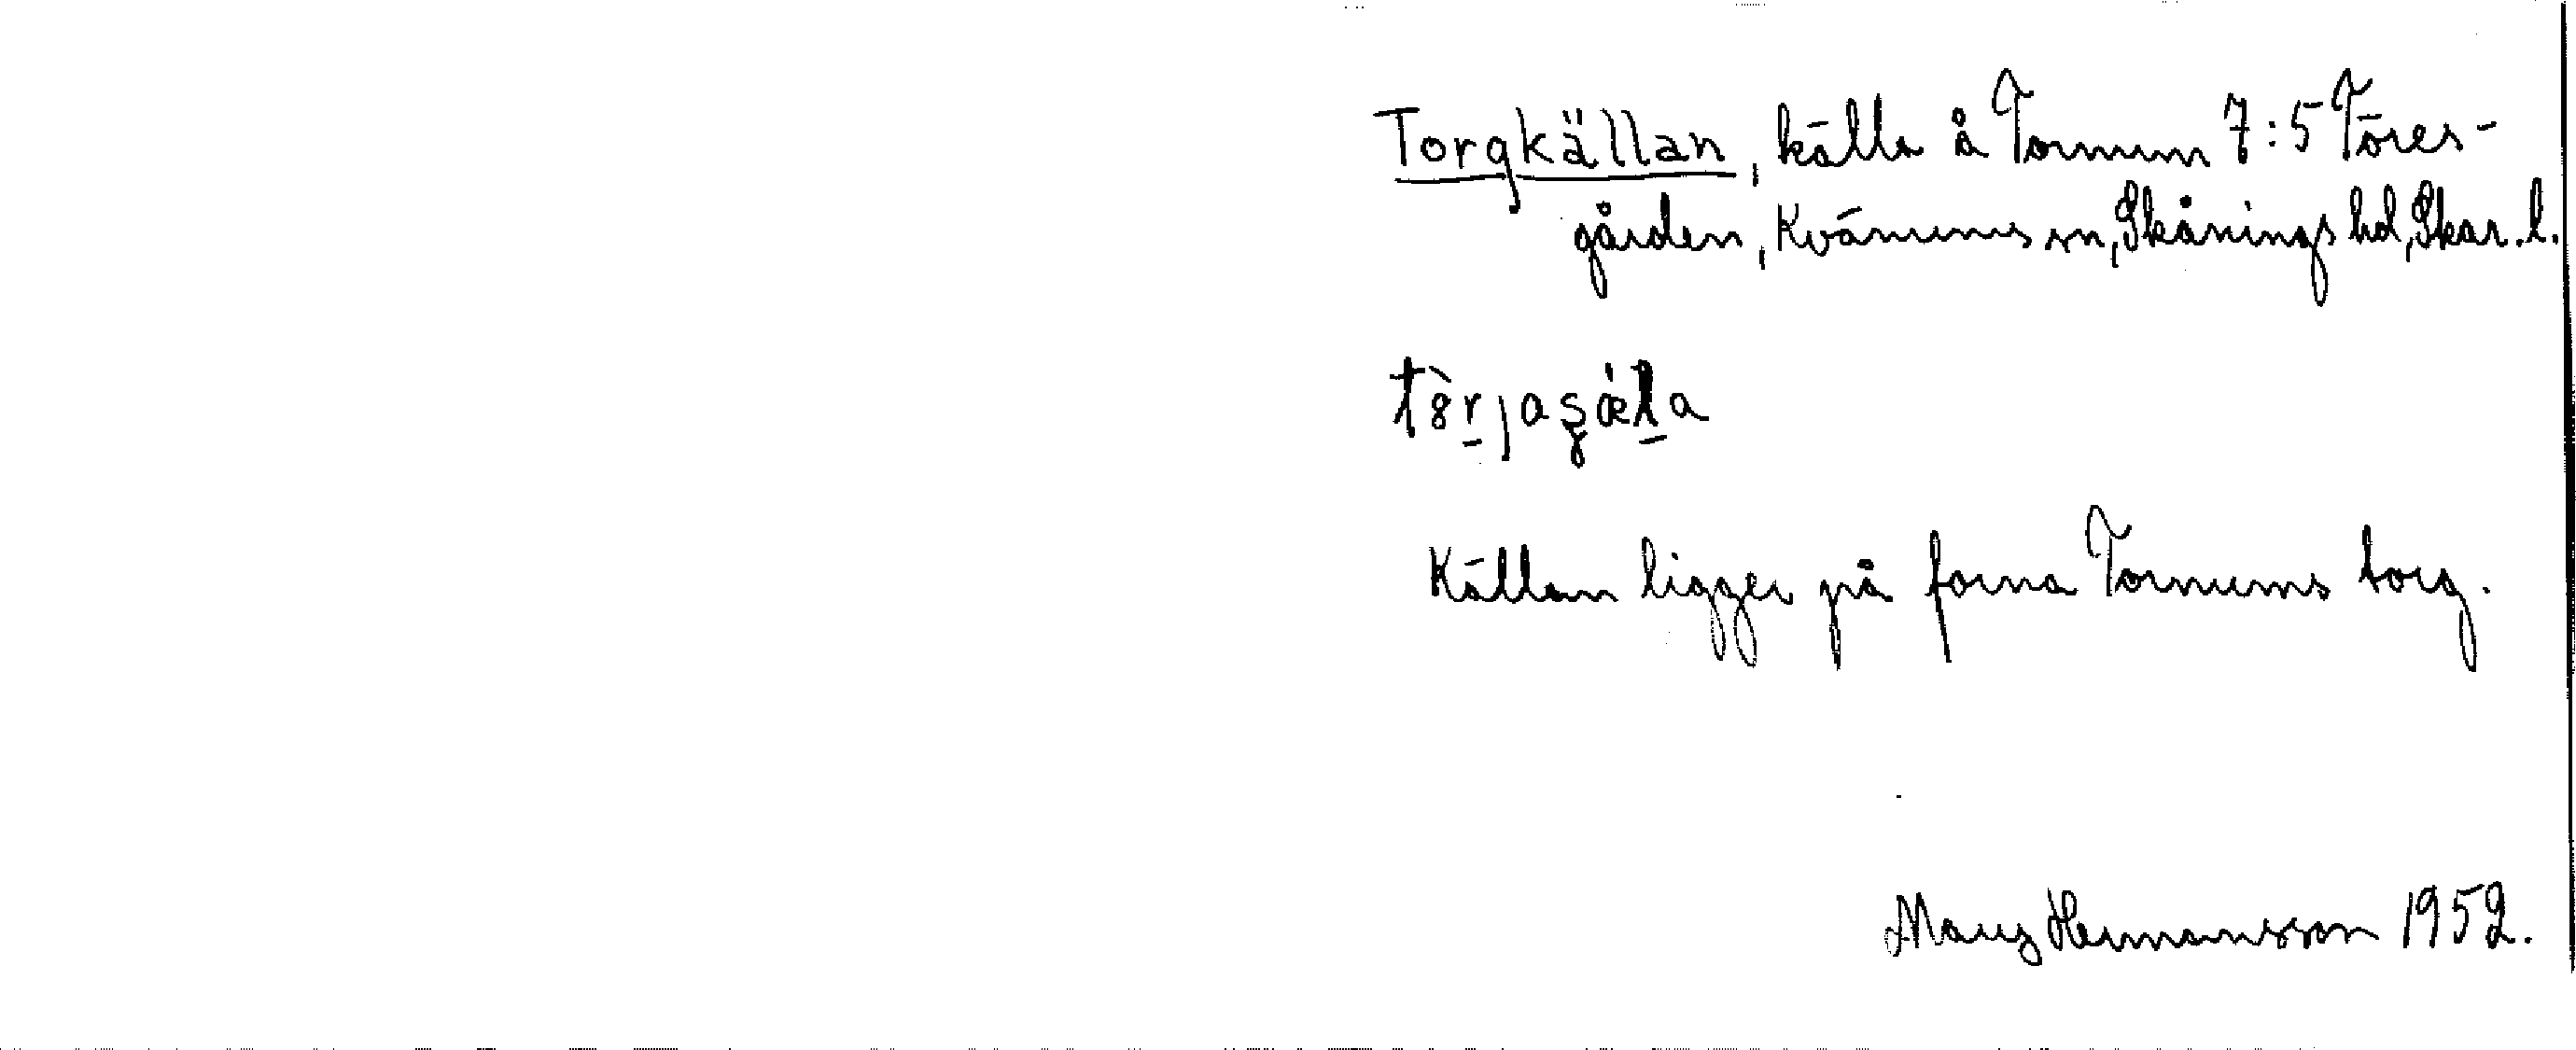 Torgkällan, källa å Tornum 7:5 Töres-
gården, Kvänums sn, Skånings hd, Skar. l.
Källan ligger på forna Tornums borg.
Hermansson 1952.